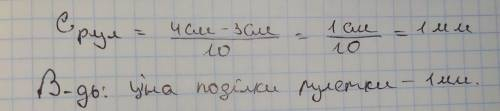 Cрул = 4см - 3см / 10 = 1см / 10 = 1мм
В-дь: ціна поділки рулетки - 1мм.